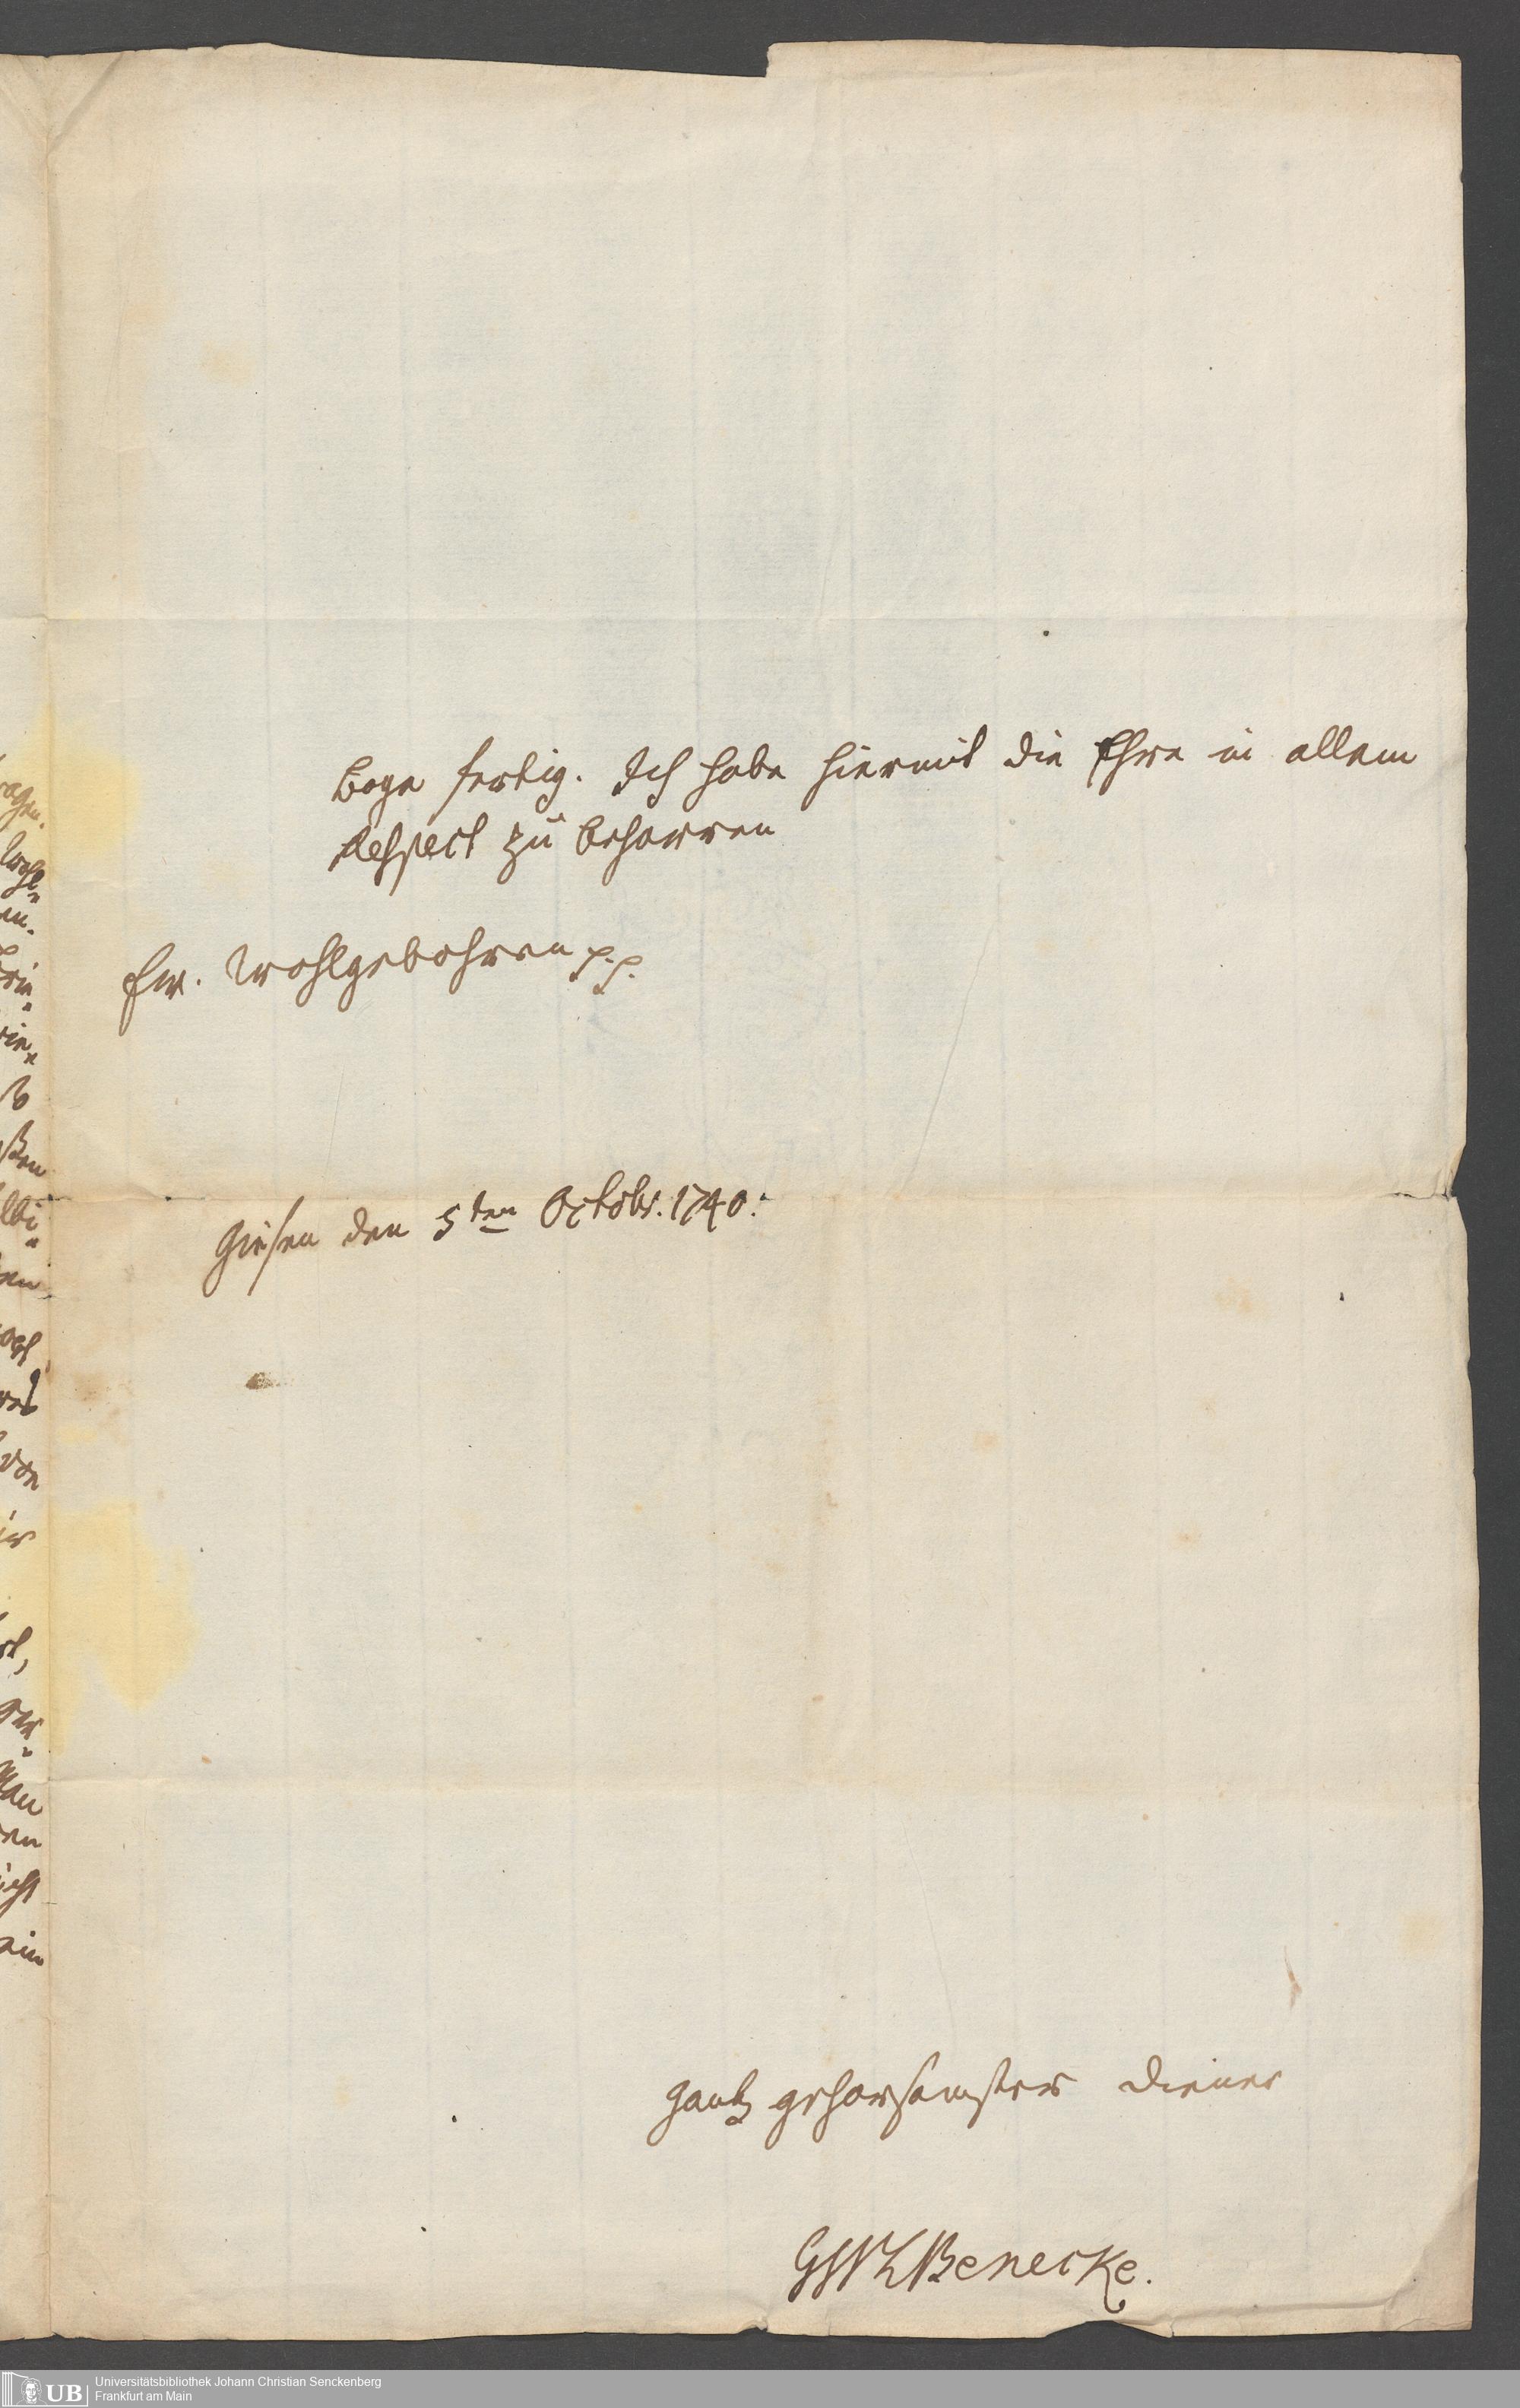 Boge fertig. Ich habe hiermit die Ehre in allem
Respect zu beharren
Ew. Wohlgebohren p.p.
Giesen den 5ten Octobr. 1740.
gantz gehorsamster Diener
Benecke.
UB
Universitätsbibliothek Johann Christian Senckenberg
Frankfurt am Main